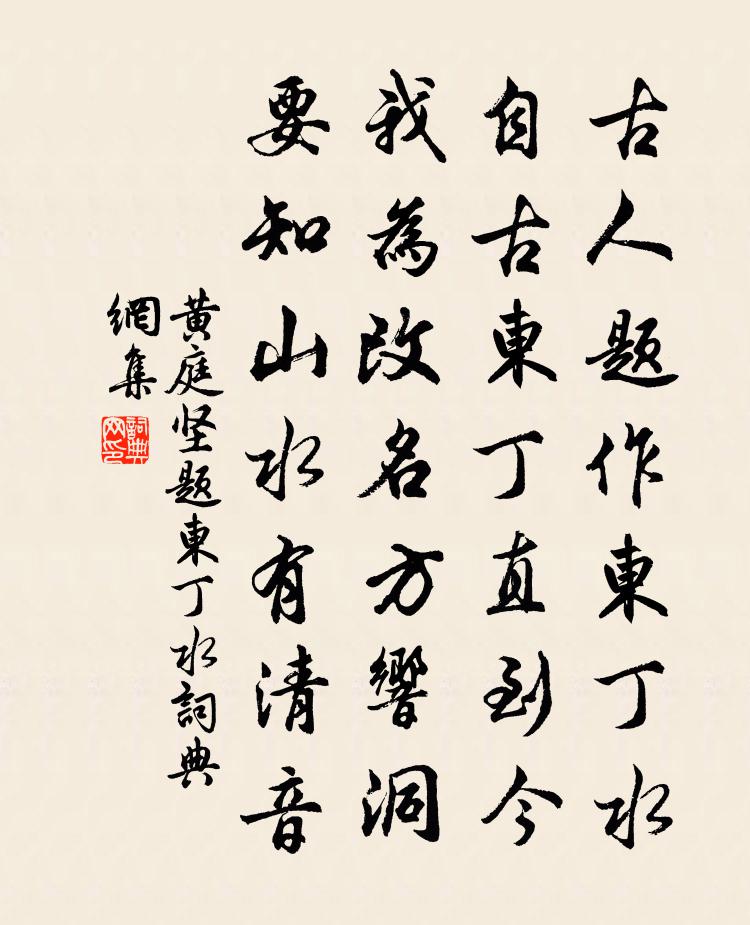 古人題作東丁水
自古東丁直到今
我為改名方響洞
要知山水有清音
黃庭坚題東丁水詞典
網集
詞典
网印